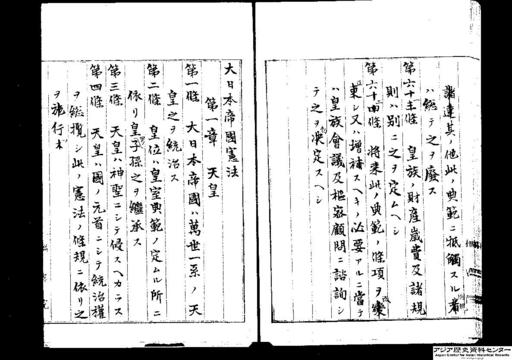 諭達其ノ他此ノ典範ニ抵觸スル者
ハ総テ之ヲ廢ス
皇族ノ財産歳費及諸規
則ハ別ニ之ヲ定ムヘシ
將来此ノ典範ノ條項ヲ
シ又ハ増補スヘキノ必要アルニ當テ
ハ皇族會議及樞密顧問ニ諮詢シ
テ之ヲ決定スヘシ
大日本帝國憲法
第一章 天皇
第一條 大日本帝國ハ萬世一系ノ天
皇之ヲ統治ス
第二條 皇位ハ皇室典範ノ定ムル所ニ
依リ皇子孫之ヲ繼承ス
第三條 天皇ハ神聖ニシテ侵スヘカラス
第四條 天皇ハ國ノ元首ニシテ統治權
ヲ総攬シ此ノ憲法ノ條規ニ依リ之
ヲ施行ス
アジア歴史資料センター
Japan Center for Asian Historical Records